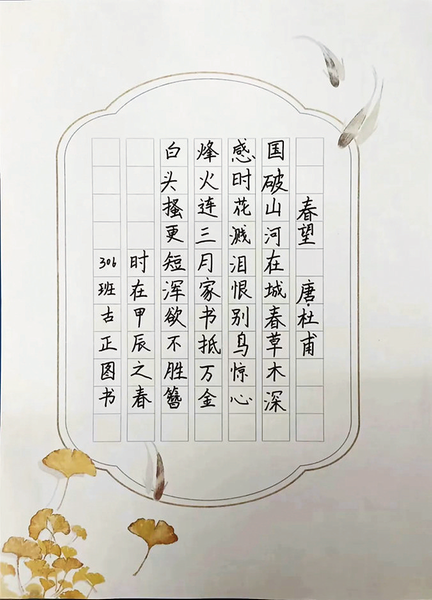 春望 唐·杜甫
国破山河在城春草木深
感时花溅泪恨别鸟惊心
烽火连三月家书抵万金
白头搔更短浑欲不胜簪
时在甲辰之春
306班古正图书